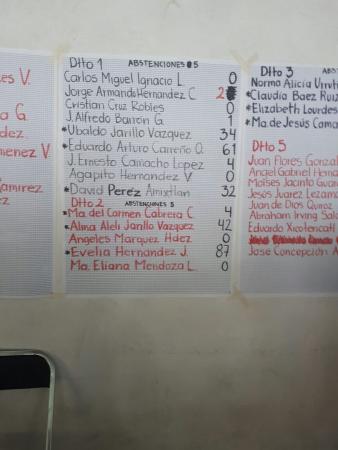 es V.
a G.
dez.
menez V
Ramirez
dez
Dtto 1 ABSTENCIONES 5
Carlos Miguel Ignacio L. 0
Jorge Armando Hernandez C. 2
Cristian Cruz Robles 0
J. Alfredo Barrón G. 1
*Ubaldo Jarillo Vazquez 34
*Eduardo Arturo Carreño O. 61
J. Ernesto Camacho Lopez 4
Agapito Hernandez V. 0
*David Perez Amixtlan 32
Dtto 2 ABSTENCIONES 5
*Ma del Carmen Cabrera C. 4
*Alina Aleli Jarillo Vazquez 42
Angeles Marquez Hdez 0
*Evelia Hernandez J. 87
Ma. Eliana Mendoza L. 0
Dtto 3
Norma Alicia Urruti
*Claudia Baez Ruiz
*Elizabeth Lourdes
*Ma. de Jesús Cama
Dtto 5
Juan Flores Gonzal
Angel Gabriel Herna
Moises Jacinto Guar
Jesús Juarez Lezama
Juan de Dios Quiroz
Abraham Irving Sala
Eduardo Xicotencatl
Jose Concepción A